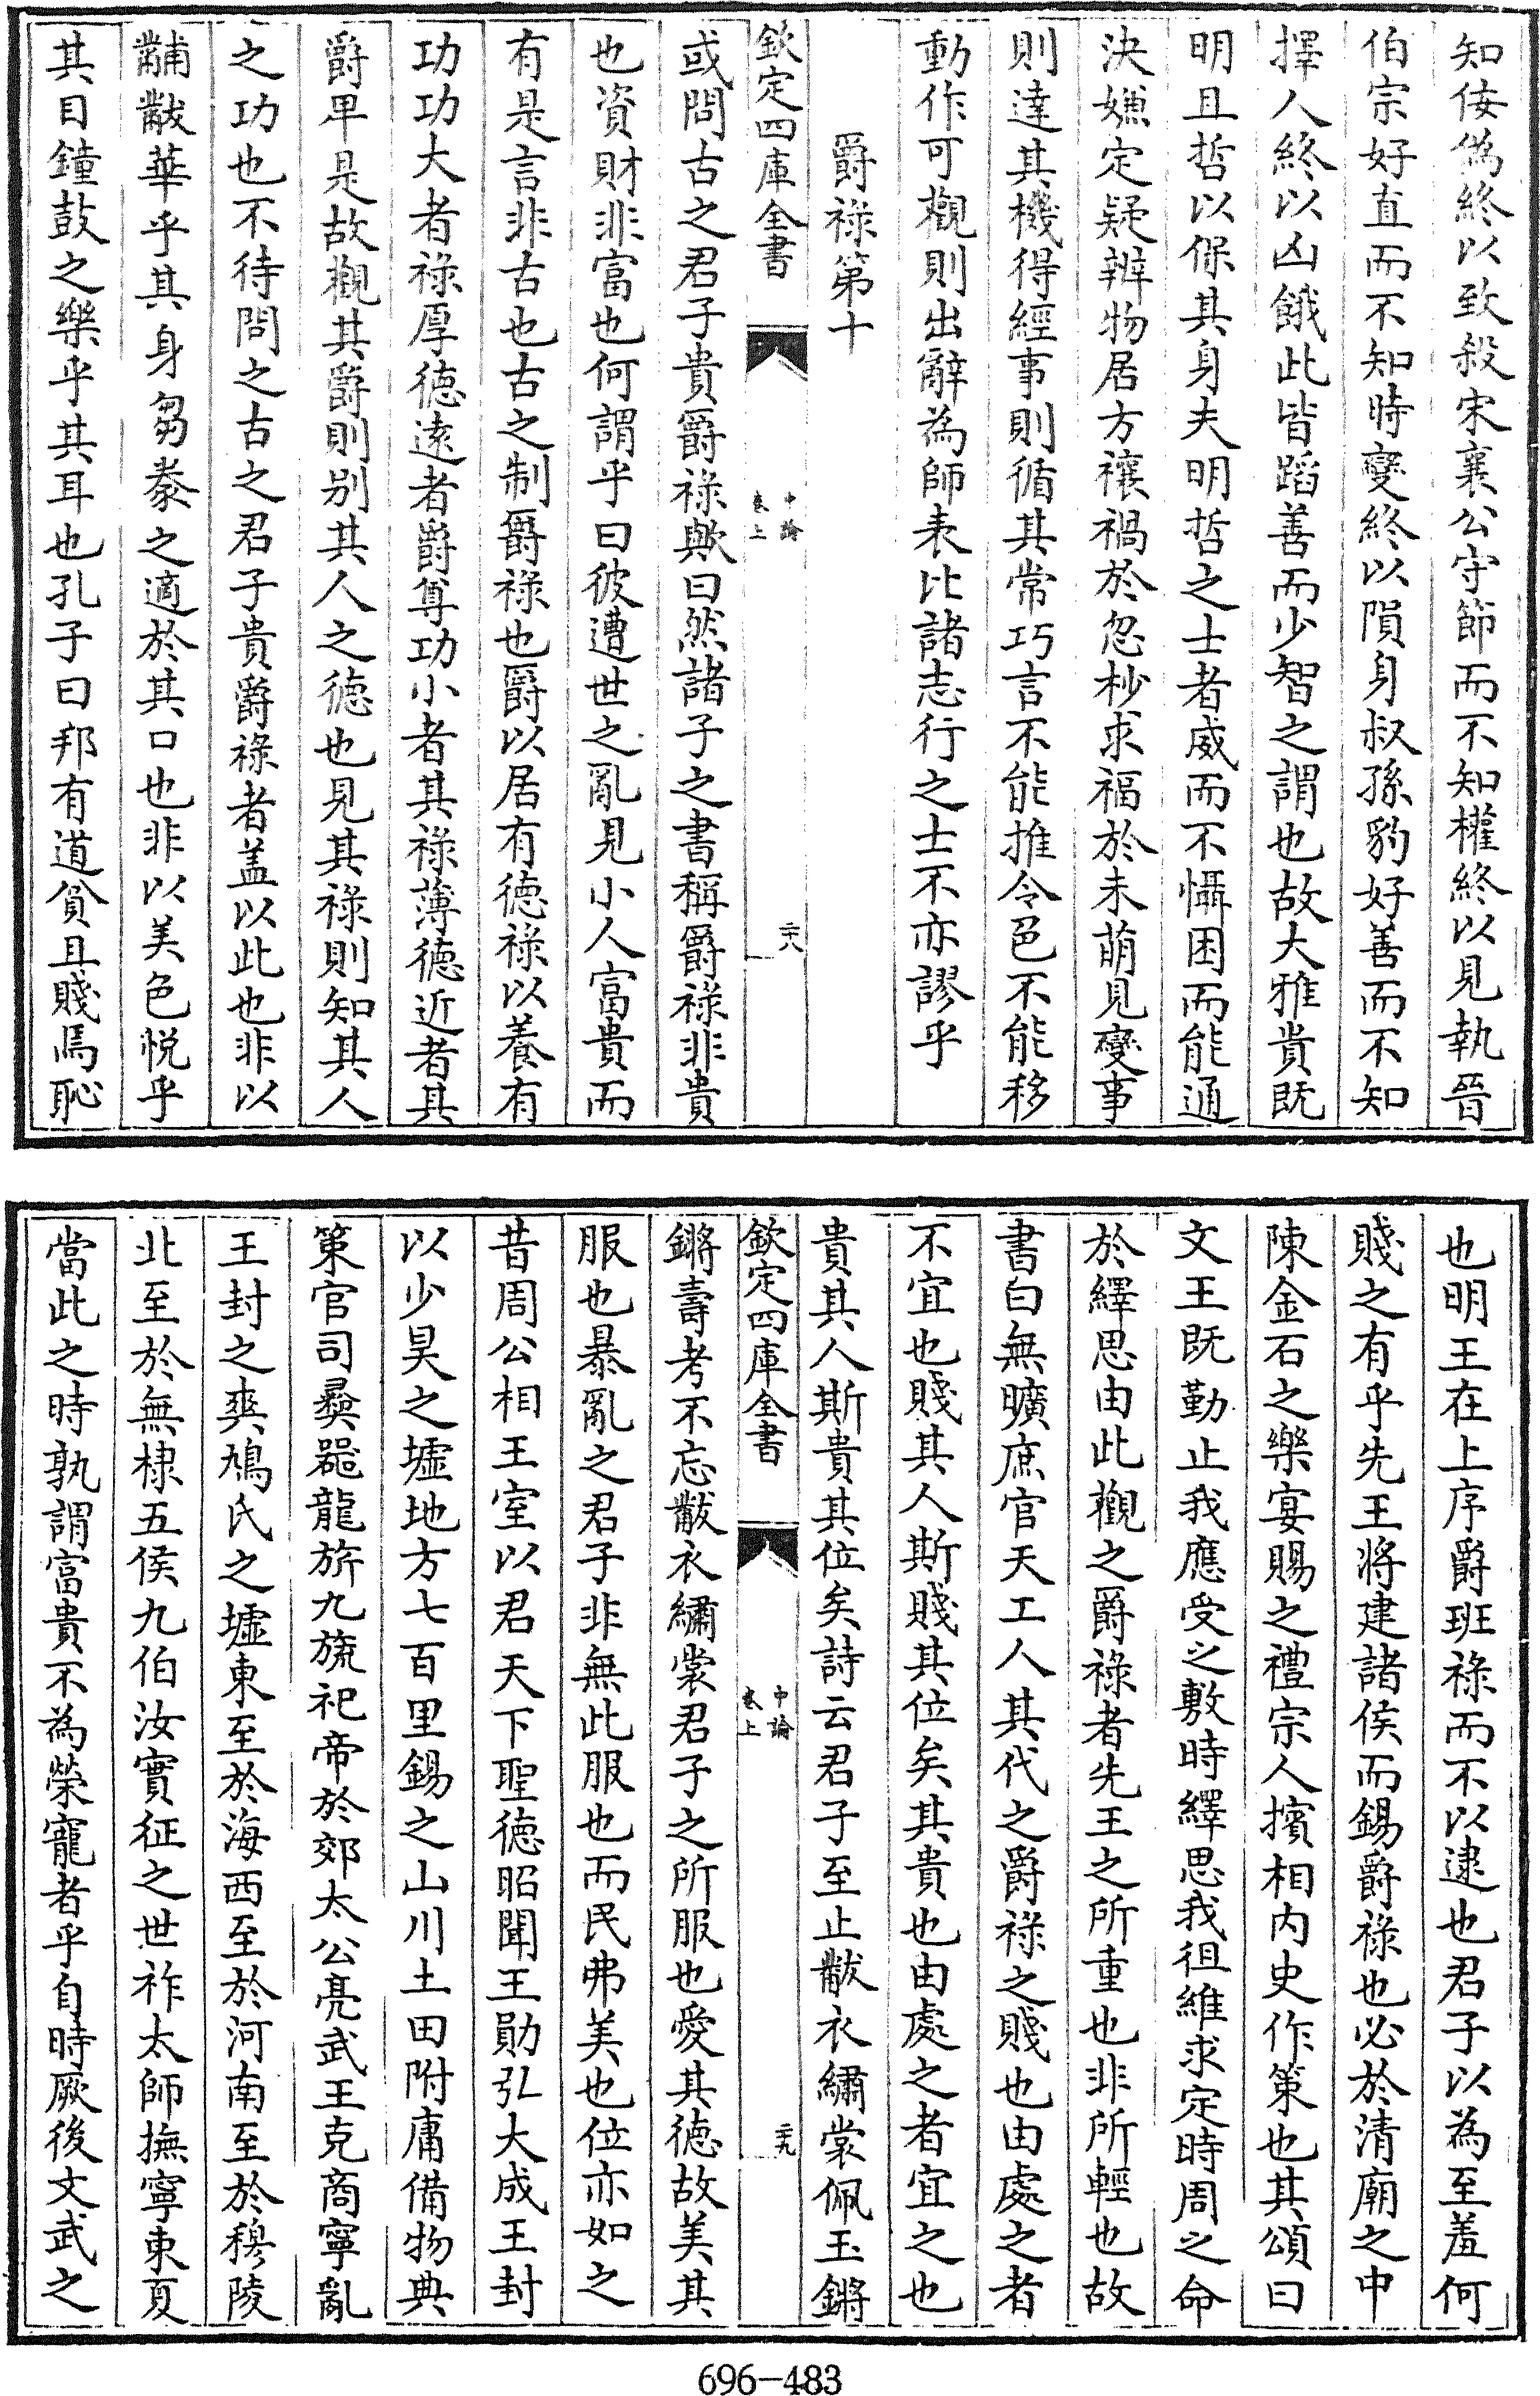 知佞偽終以致殺宋襄公守節而不知權終以見執晉
伯宗好直而不知時變終以隕身叔孫豹好善而不知
擇人終以凶餓此皆蹈善而少智之謂也故大雅貴既
明且哲以保其身夫明哲之士者威而不懾困而能通
決嫌定疑辨物居方禳禍於忽杪求福於未萌見變事
則達其機得經事則循其常巧言不能推令色不能移
動作可觀則出辭為師表比諸志行之士不亦謬乎
爵祿第十
欽定四庫全書
中論
卷上
二十八
或問古之君子貴爵祿歟曰然諸子之書稱爵祿非貴
也資財非富也何謂乎曰彼遭世之亂見小人富貴而
有是言非古也古之制爵祿也爵以居有徳祿以養有
功功大者祿厚徳遠者爵尊功小者其祿薄徳近者其
爵卑是故觀其爵則别其人之徳也見其祿則知其人
之功也不待問之古之君子貴爵祿者葢以此也非以
黼黻華乎其身芻豢之適於其口也非以美色悅乎
其目鐘鼓之樂乎其耳也孔子曰邦有道貧且賤焉恥
也明王在上序爵班祿而不以逮也君子以為至羞何
賤之有乎先王將建諸侯而錫爵祿也必於清廟之中
陳金石之樂宴賜之禮宗人擯相内史作策也其頌曰
文王既勤止我應受之敷時繹思我徂維求定時周之命
於繹思由此觀之爵祿者先王之所重也非所輕也故
書曰無曠庶官天工人其代之爵祿之賤也由處之者
不宜也賤其人斯賤其位矣其貴也由處之者宜之也
貴其人斯貴其位矣詩云君子至止黻衣繡裳佩玉鏘
欽定四庫全書
中論
卷上
二十九
鏘壽考不忘黻衣繡裳君子之所服也愛其徳故美其
服也暴亂之君子非無此服也而民弗美也位亦如之
昔周公相王室以君天下聖徳昭聞王勛弘大成王封
以少昊之墟地方七百里錫之山川土田附庸備物典
策官司彞器龍旂九旒祀帝於郊太公亮武王克商寧亂
王封之爽鳩氏之墟東至於海西至於河南至於穆陵
北至於無棣五侯九伯汝實征之世祚太師撫寧東夏
當此之時孰謂富貴不為榮寵者乎自時厥後文武之
696-483